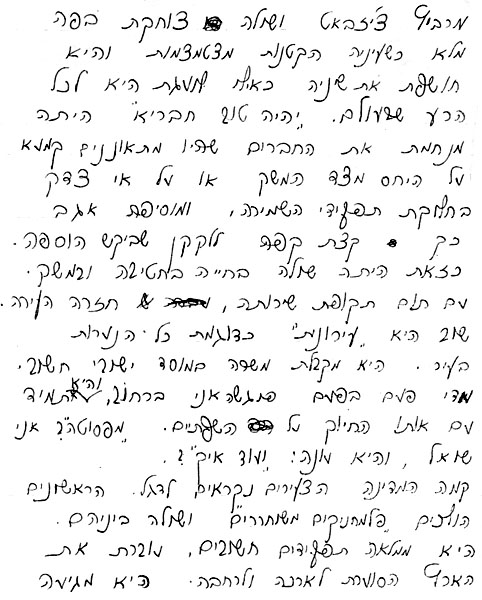 מרביץ צ'יזבאט ושולה צוחקת בפה
מלא כשעיניה הקטנות מצטמצמות והיא
חושפת את שיניה כאילו לועגת היא לכל
הרע שבעולם. "יהיה טוב חבריא" היתה
מנחמת את החברים שהיו מתאוננים קמעא
על היחס מצד המשק או על אי צדק
בחלוקת תפקידי השמירה, ומוסיפה אגב
כך קצת קפה ללקקן שביקש הוספה.
כזאת היתה שולה בחייה בחטיבה ובמשק.
עם תום תקופת שירותה, חזרה העירה.
שוב היא "עירונית" כדוגמת כל הנערות
בעיר. היא מקבלת משרה במוסד ישובי חשוב.
מדי פעם בפעם פוגשה אני ברחוב, והיא תמיד
עם אותו החיוך על השפתיים. "מבסוטה"? אני
שואל, והיא עונה: "ועוד איך"?.
קמה המדינה הצעירים נקראים לדגל. הראשונים
הולכים "פלמחניקים משוחררים" ושולה ביניהם.
היא ממלאה תפקידים חשובים, עוברת את
הארץ הסוערת לארכה ולרחבה. היא מגיעה